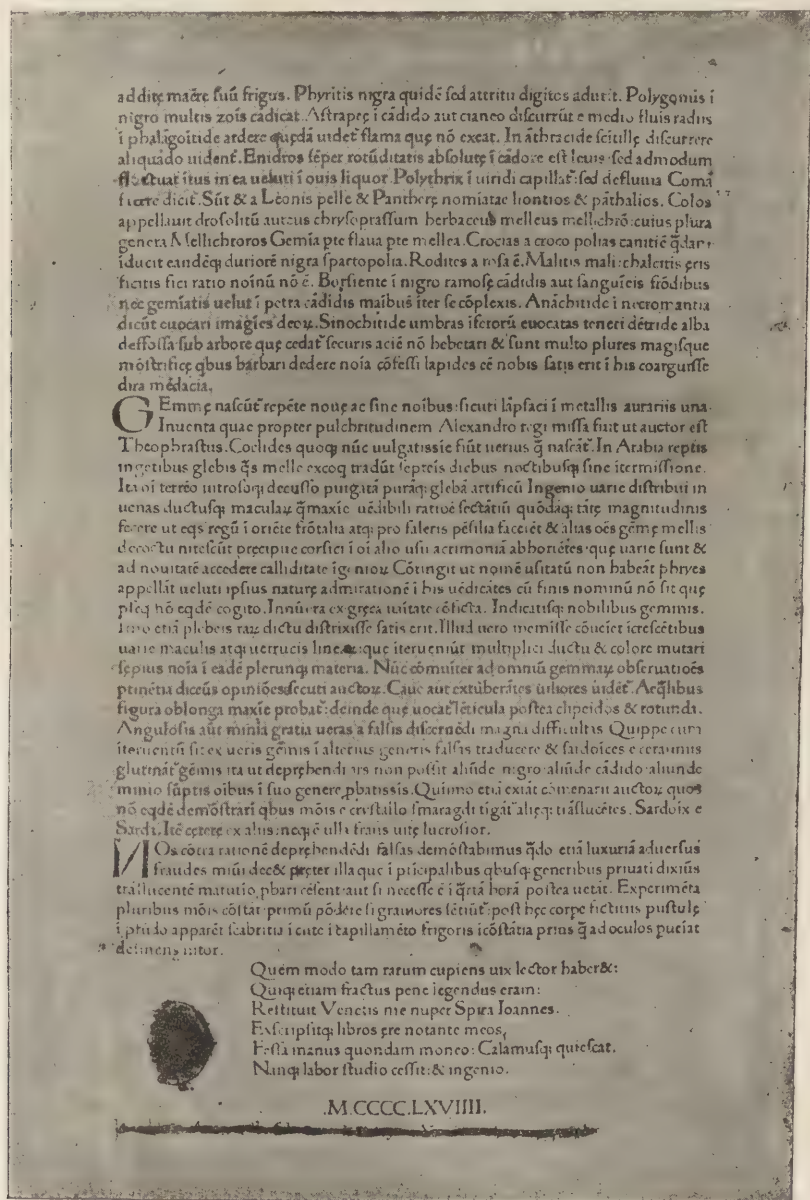 additę maēre suū frigus. Phyritis nigra quidē sed attritu digitos adurit. Polygomis ī
nigro multis zois cādicat. Astrapeę ī cādido aut cianeo discurrūt e medio fluis radiis
ī phalāgoitide ardere quędā uidet᷑ flama quę nō exeat. In āthracide scitillę discurrere
aliquādo uident᷑. Enidros sēper rotūditatis absolutę ī cādore est leuis sed admodum
fluctuat ītus in ea ueluti ī ouis liquor. Polythrix ī uiridi capillat᷑: sed defluuia Comā
facere dicit᷑. Sūt & a Leonis pelle & Pantherę nomiatae liontios & pāthalios. Colos
appellauit drosolitū aureus chrysoprassum herbaceus melleus mellichrō: cuius plura
genera Mellichroros Gemīa pte flaua pte mellea. Crocias a croco polias canitiē
īducit eandēq; duriorē nigra spartopolia. Rodites a rosa ē. Malitis mali: chalcitis ęris
ficitis fici ratio noīnū nō ē. Borsiente ī nigro ramosę cādidis aut sanguīeis frōdibus
nec gemīatis uelut ī petra cādidis maībus īter se cōplexis. Anāchitide ī necromantia
dicūt euocari imagīes deoꝝ. Sinochitide umbras īferorū euocatas teneri dētride alba
deffossa sub arbore quę cedat᷑ securis aciē nō hebetari & sunt multo plures magisque
mōstrificę qbus barbari dedere noīa cōfessi lapides eē nobis satis erit ī his coarguisse
dira mēdacia.
GEmmę nascūt᷑ repēte nouę ac sine noībus: sicuti lāpsaci ī metallis aurariis una
Inuenta quae propter pulchritudinem Alexandro regi missa fuit ut auctor est
Theophrastus. Coclides quoq; nūc uulgatissie fiūt uerius q̄ nascāt᷑. In Arabia reptis
ingētibus glebis q̄s melle excoq tradūt septeis diebus noctibusq; sine itermissione.
Ita oī terrēo uitrosoq; decusso purgatā purāq; glebā artificū Ingenio uarie distribui in
uenas ductusq; maculaꝝ q̄maxīe uēdibili ratioē sectātiū quōdāq; tātę magnitudinis
fecere ut eqs regū ī oriēte frōtalia atq; pro faleris pēsilia facerēt & alias oēs gēmę mellis
decoctu nitescūt pręcipue corsici ī oī alio usū acrimoniā abhorrētes quę uarie sunt &
ad nouitatē accedere calliditate īgenioꝝ Cōtingit ut nomē usitatū non habeāt phryes
appellāt ueluti ipsius naturę admirationē ī his uēdicātes cū finis nominū nō sit quę
pseq nō eqdē cogito. Innūera ex gręca uitate cōficta. Indicatisq; nobilibus gemmis.
Imo etiā plebeis raꝝ dictu distrixisse satis erit. Illud uero memisse cōueiet īcrescētibus
uarie maculis atq; uerrucis lineę. que īterueniūt multiplici ductu & colore mutari
sępius noīa ī eadē plerunq; materia. Nūc cōmuiter ad omniū gemmaꝝ obseruatioēs
ptinētia dicēus opiniōes secuti auctoꝝ. Cauę aut extūberātes uiliores uidēt᷑. Aeq̄libus
figura oblonga maxīe probat᷑: deinde quę uocat᷑ lēticula postea clipeidos & rotunda.
Angulosis aūt minīa gratia ueras a falsis discernēdi magna difficultas Quippe cum
iteruentū sit ex ueris gēmis ī alterius generis falsas traducere & sardoīces e cerauniis
glutināt᷑ gēmis ita ut depręhendi ars non possit aliūde nigro aliūde cādido aliunde
minio sūptis oībus ī suo genere pbatissis. Quinno etiā extāt cōmenarii auctoꝝ quos
nō eqdē demōstrari qbus mōis e crystallo smaragdi tigāt᷑ alięq; trāslucētes. Sardoix e
Sardi. Itē cęterę ex aliis: neq; ē ulla fraus uitę lucrosior.
NOs cōtra rationē depręhendēdi falsas demōstabimus q̄do etiā luxuriā aduersus
fraudes miūi dec& pręter illa que ī pricipalibus qbusq; generibus priuati diximus
trāslucentē matutio pbari cēsent aut si necesse ē ī q̄rtā horā postea uetāt. Experimēta
pluribus mōis cōstāt primū pōdere si grauiores sētiūt᷑: post hęc corpe fictitiis pustulę
ī pfūdo apparēt scabritia ī cute ī capillamēto frigoris īcōstātia prius q̄ ad oculos puciat
desinens nitor.
Quem modo tam rarum cupiens uix lector haber&:
Quiq; etiam fractus pene legendus eram:
Restituit Venetis me nuper Spira Ioannes.
Exscripsitq; libros ęre notante meos.
Fessa manus quondam moneo: Calamusq; quiescat.
Nanq; labor studio cessit: & ingenio.
.M.CCCC.LXVIIII.